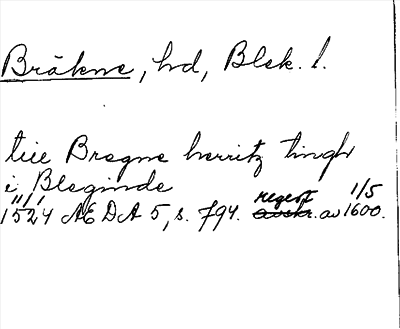 Bräkne, hd, Blek. l.
tiie Bregne herritz tingh
i Bleginde
11/1 regest 1/5
1524 ÆDA 5, s. 794. avskr. av 1600.